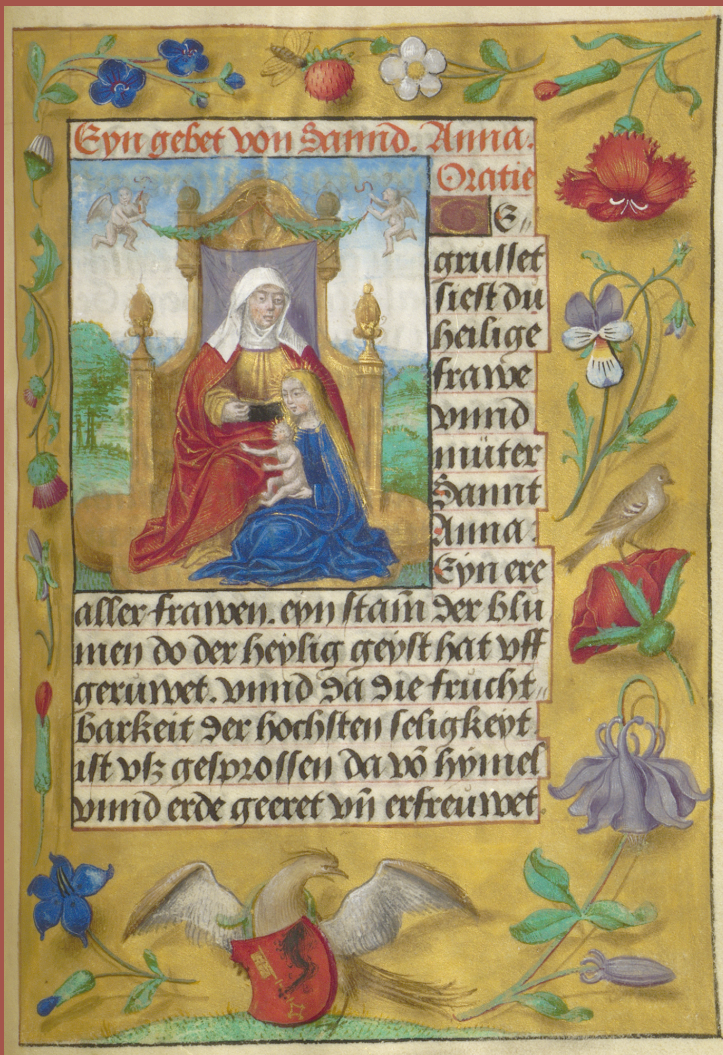 Eyn gebet von Sannd. Anna.
Oratie
GE⸗
grusset
siest du
heilige
frawe
vnnd
müter
Sannt
Anna.
Eyn ere
aller frawen. eyn stam̄ der blu
men do der heylig geyst hat vff
geruwet. vnnd da die frucht⸗
barkeit der hochsten seligkeyt.
ist vsz gesprossen da vō hymel
vnnd erde geeret vn̄ erfreuwet.